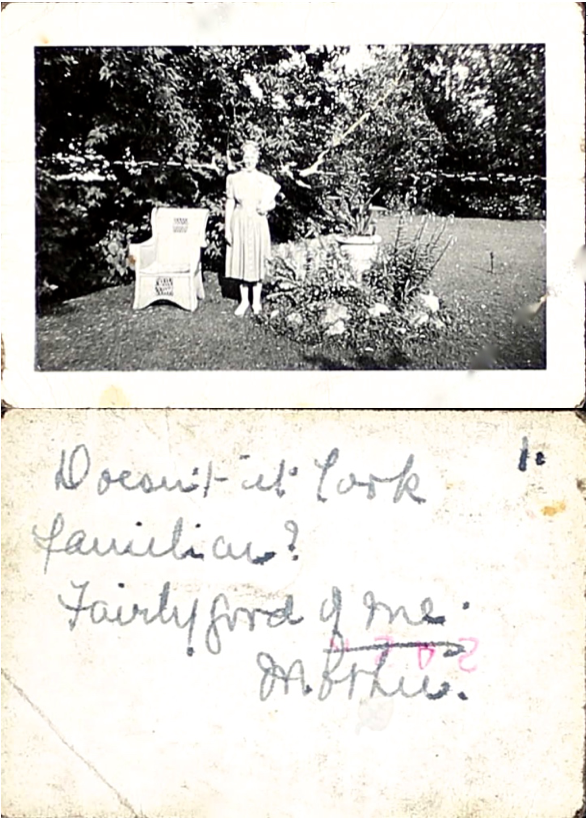 1.
Doesn't it look
familiar?
Fairly good of me.
Mother.